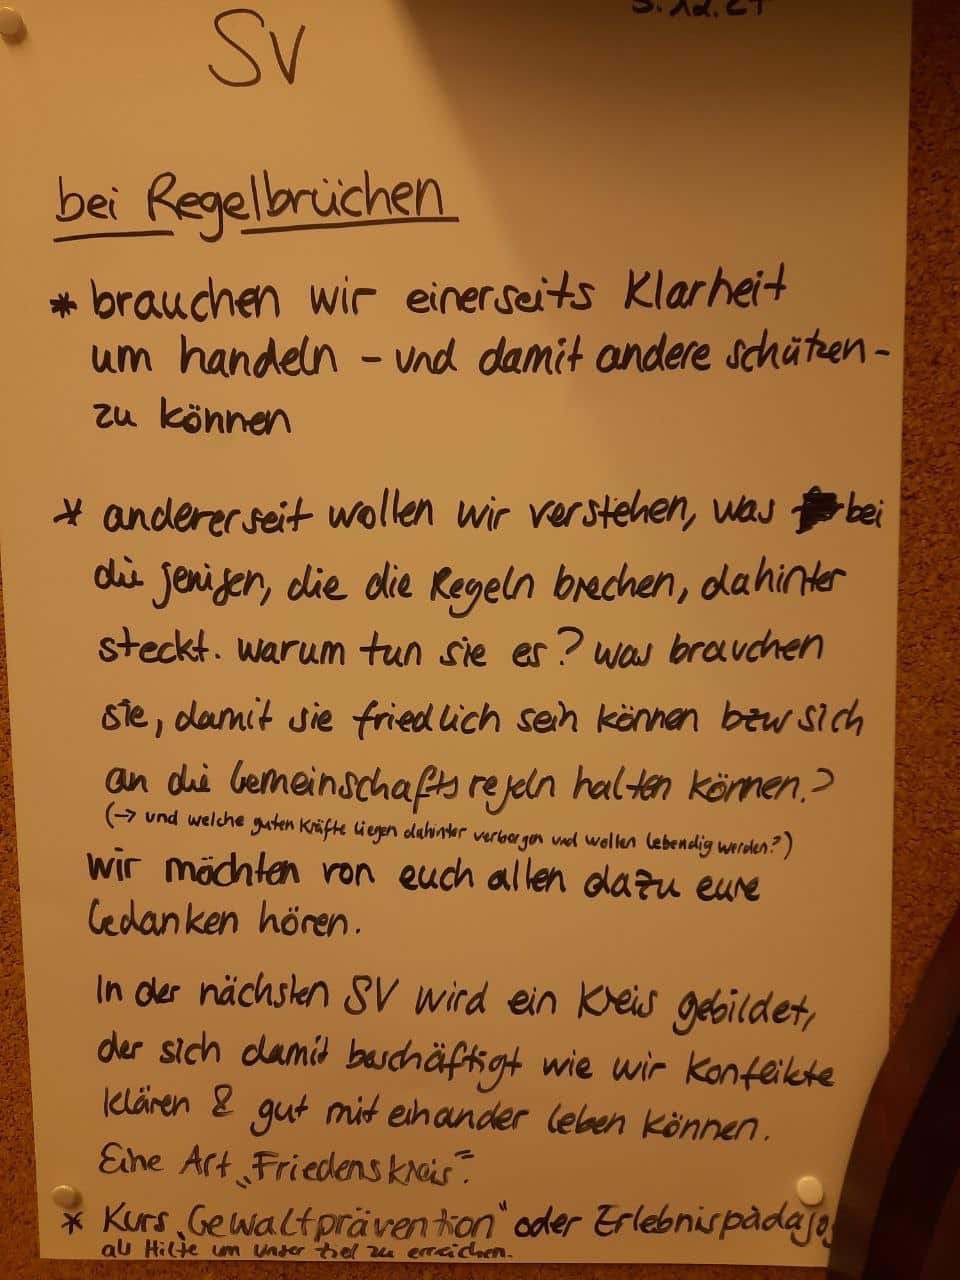 SV
bei Regelbrüchen
* brauchen wir einerseits Klarheit
um handeln - und damit andere schützen -
zu können
* andererseit wollen wir verstehen, was bei
die jenigen, die die Regeln brechen, dahinter
steckt. warum tun sie es? was brauchen
sie, damit sie friedlich sein können bzw sich
an die Gemeinschaftsregeln halten können?
(→ und welche guten Kräfte liegen dahinter verborgen und wollen lebendig werden?)
wir möchten von euch allen dazu eure
Gedanken hören.
In der nächsten SV wird ein Kreis gebildet,
der sich damit beschäftigt wie wir Konfeikte
klären & gut mit einander leben können.
Eine Art „Friedenskreis".
* Kurs „Gewaltprävention" oder Erlebnispädago
als Hilfe um unser Ziel zu erreichen.